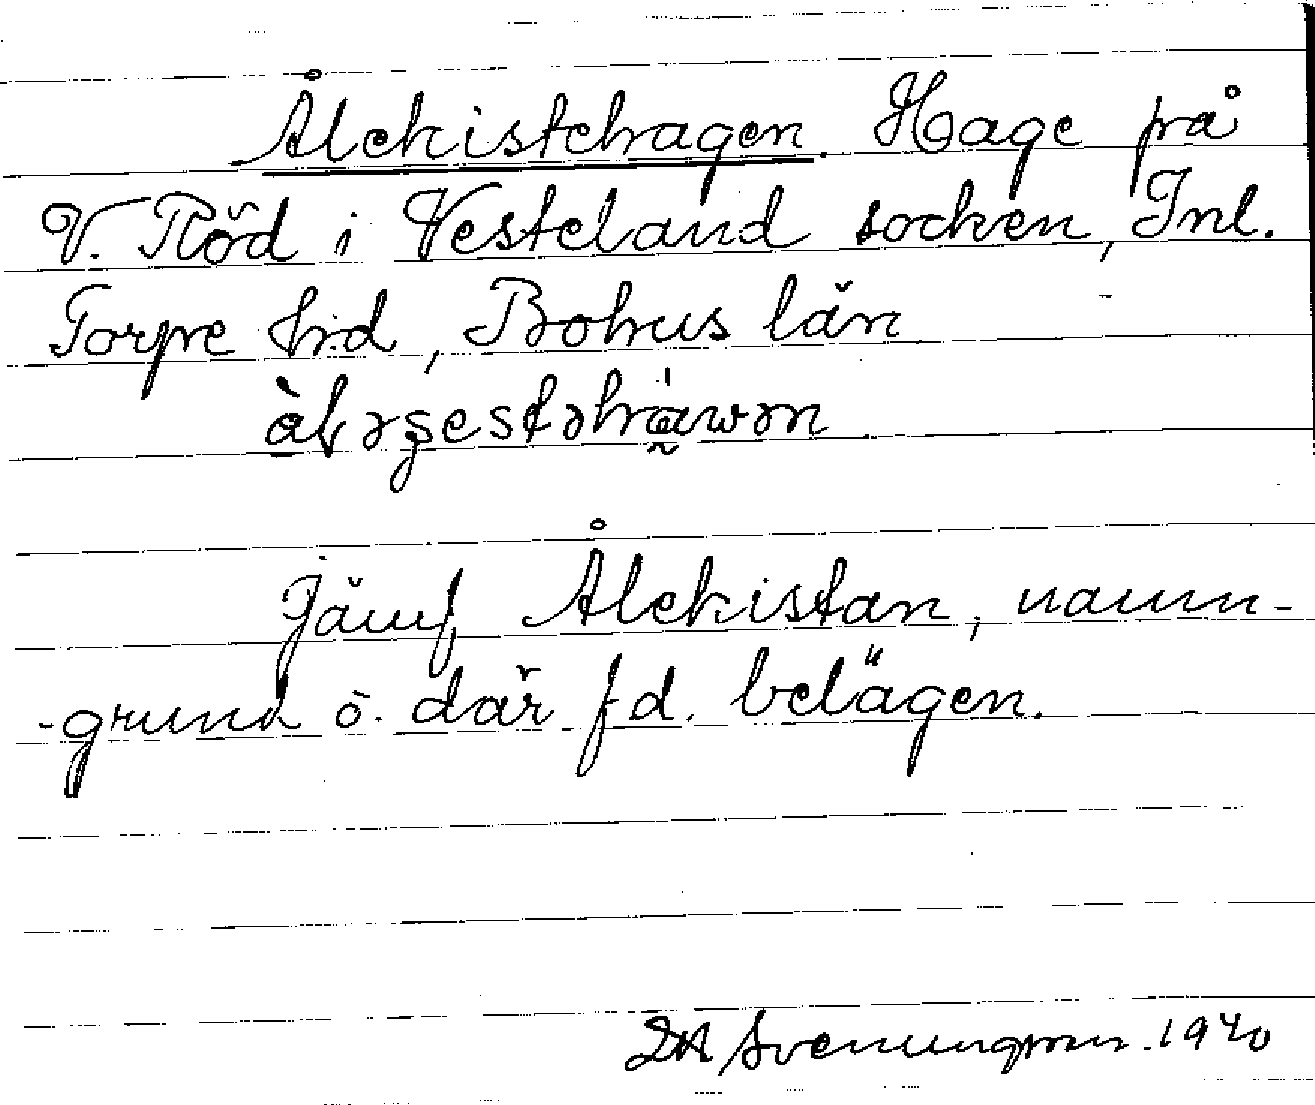 Ålekistehagen. Hage på
V. Röd i Vesteland socken, Inl.
Torpe hd, Bohus län
Jämf. Ålekistan, namn-
-grund ö. där f d. belägen.
Svenungsson. 1940